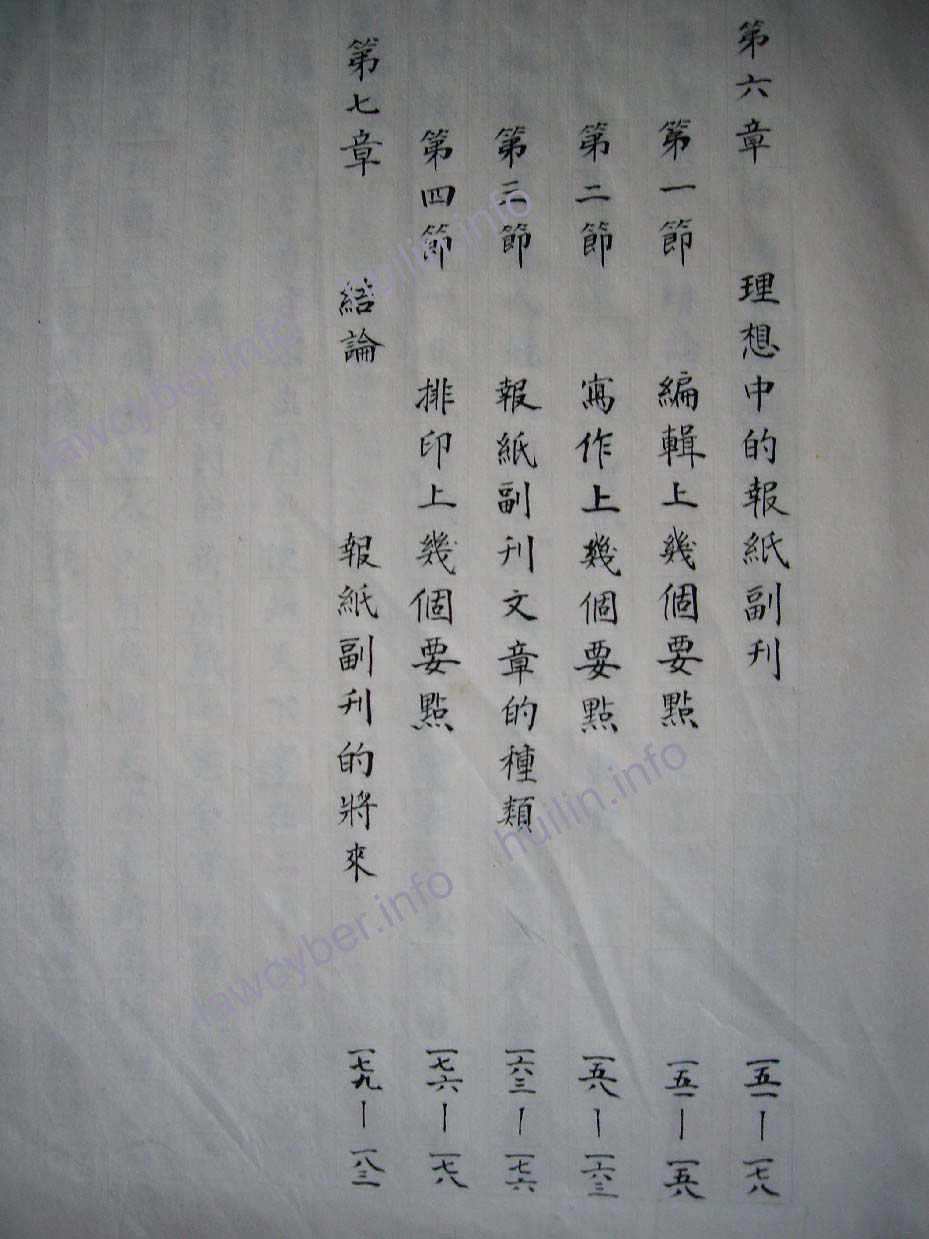 第六章 理想中的報紙副刊 一五一—一七八
第一節 編輯上幾個要點 一五一—一五八
第二節 寫作上幾個要點 一五八—一六三
第三節 報紙副刊文章的種類 一六三—一七六
第四節 排印上幾個要點 一七六—一七八
第七章 結論 報紙副刊的將來 一七九—一八三
huilin.info
lawcyber.info
huilin.info
lawcyber.info